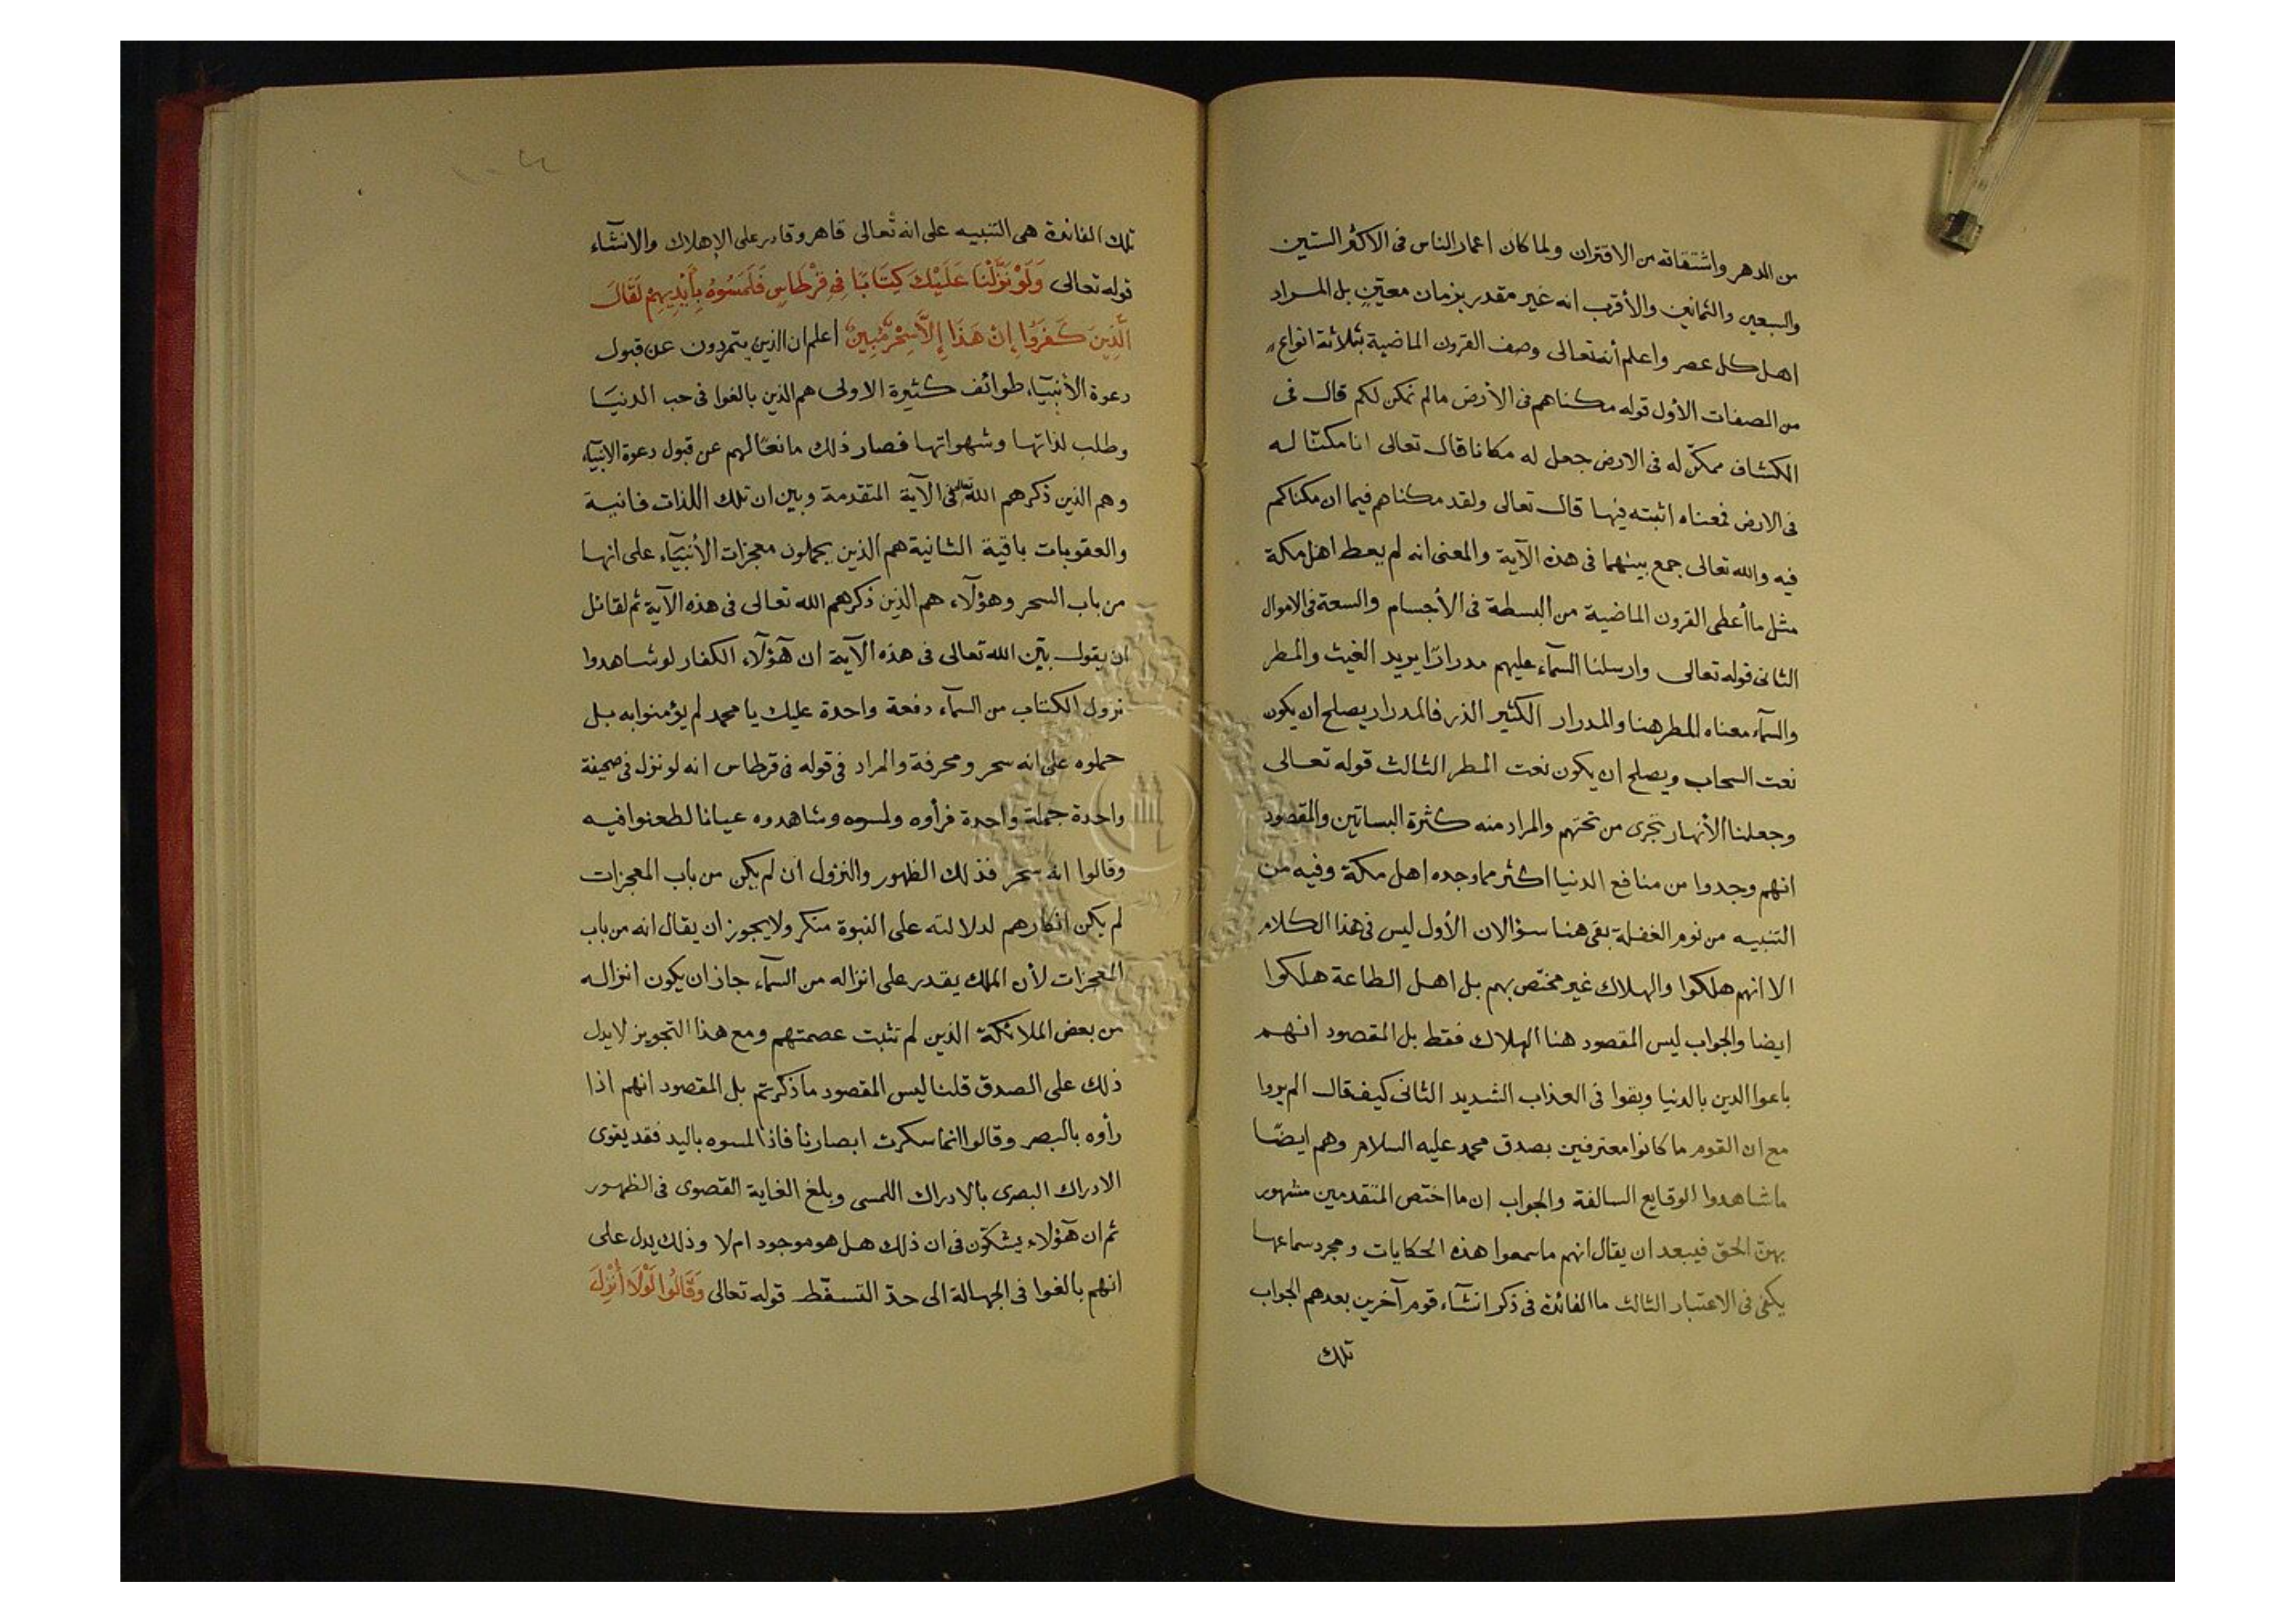 من الدهر واشتقاقه من الاقتران ولما كان اعمار الناس فى الاكثر الستين
والسبعين والثمانين والأقرب انه غير مقدر بزمان معيّن بل المراد
اهل كل عصر واعلم أنه تعالى وصف القرون الماضية بثلاثة انواع
من الصفات الأول قوله مكناهم فى الأرض مالم نمكن لكم قال فى
الكشاف مكّن له فى الارض جعل له مكانا قال تعالى انا مكنّا له
فى الارض فمعناه اثبته فيها قال تعالى ولقد مكناهم فيما ان مكناكم
فيه والله تعالى جمع بينهما فى هذه الآية والمعنى انه لم يعط اهل مكة
مثل ما أعطى القرون الماضية من البسطة فى الأجسام والسعة فى الاموال
الثانى قوله تعالى وارسلنا السمآء عليهم مدرارًا يريد الغيث والمطر
والسمآء معناه المطر هنا والمدرار الكثير الذر فالمدرار يصلح ان يكون
نعت السحاب ويصلح ان يكون نعت المطر الثالث قوله تعالى
وجعلنا الأنهار تجرى من تحتهم والمراد منه كثرة البساتين والمقصود
انهم وجدوا من منافع الدنيا اكثر مما وجده اهل مكة وفيه من
التنبيه من نوم الغفلة بقى هنا سؤالان الأول ليس فى هذا الكلام
الا انهم هلكوا والهلاك غير مختص بهم بل اهل الطاعة هلكوا
ايضا والجواب ليس المقصود هنا الهلاك فقط بل المقصود انهم
باعوا الدين بالدنيا وبقوا فى العذاب الشديد الثانى كيف قال الم يروا
مع ان القوم ما كانوا معترفين بصدق محمد عليه السلام وهم ايضًا
ما شاهدوا الوقايع السالفة والجواب ان ما اختص المتقدمين مشهور
بهن الحق فيبعد ان يقال انهم ما سمعوا هذه الحكايات ومجرد سماعها
يكفى فى الاعتبار الثالث ما الفائدة فى ذكر انشآء قوم آخرين بعدهم الجواب
تلك
تلك الفائدة هى التنبيه على انه تعالى قاهر وقادر على الإهلاك والانشآء
قوله تعالى وَلَوْ نَزَّلْنَا عَلَيْكَ كِتَابًا فِى قِرْطَاسٍ فَلَمَسُوهُ بِأَيْدِيهِمْ لَقَالَ
الَّذِينَ كَفَرُوا إِنْ هَذَا إِلَّا سِحْرٌ مُبِينٌ اعلم ان الذين يتمردون عن قبول
دعوة الأنبيآء طوائف كثيرة الاولى هم الذين بالغوا فى حب الدنيا
وطلب لذاتها وشهواتها فصار ذلك مانعًا لهم عن قبول دعوة الانبيآء
وهم الذين ذكرهم الله تعالى فى الآية المتقدمة وبين ان تلك اللذات فانية
والعقوبات باقية الثانية هم الذين يحملون معجزات الأنبيآء على انها
من باب السحر وهؤلآء هم الذين ذكرهم الله تعالى فى هذه الآية ثم لقائل
ان يقول بيّن الله تعالى فى هذه الآية ان هؤلآء الكفار لو شاهدوا
نزول الكتاب من السمآء دفعة واحدة عليك يا محمد لم يؤمنوا به بل
حملوه على انه سحر ومخرفة والمراد فى قوله فى قرطاس انه لو نزل فى صحيفة
واحدة جملة واحدة فرأوه ولمسوه وشاهدوه عيانا لطعنوا فيه
وقالوا انه سحر فذلك الظهور والنزول ان لم يكن من باب المعجزات
لم يكن انكارهم لدلالته على النبوة منكر ولا يجوز ان يقال انه من باب
المعجزات لأن الملك يقدر على انزاله من السمآء جاز ان يكون انزاله
من بعض الملائكة الذين لم تثبت عصمتهم ومع هذا التجويز لا يدل
ذلك على الصدق قلنا ليس المقصود ما ذكرتم بل المقصود انهم اذا
رأوه بالبصر وقالوا انما سكرت ابصارنا فاذا لمسوه باليد فقد يقوى
الادراك البصرى بالادراك اللمسى وبلغ الغاية القصوى فى الظهور
ثم ان هؤلاء يشكّون فى ان ذلك هل هو موجود ام لا وذلك يدل على
انهم بالغوا فى الجهالة الى حدّ التسفّط قوله تعالى وَقَالُوا لَوْلَا أُنْزِلَ